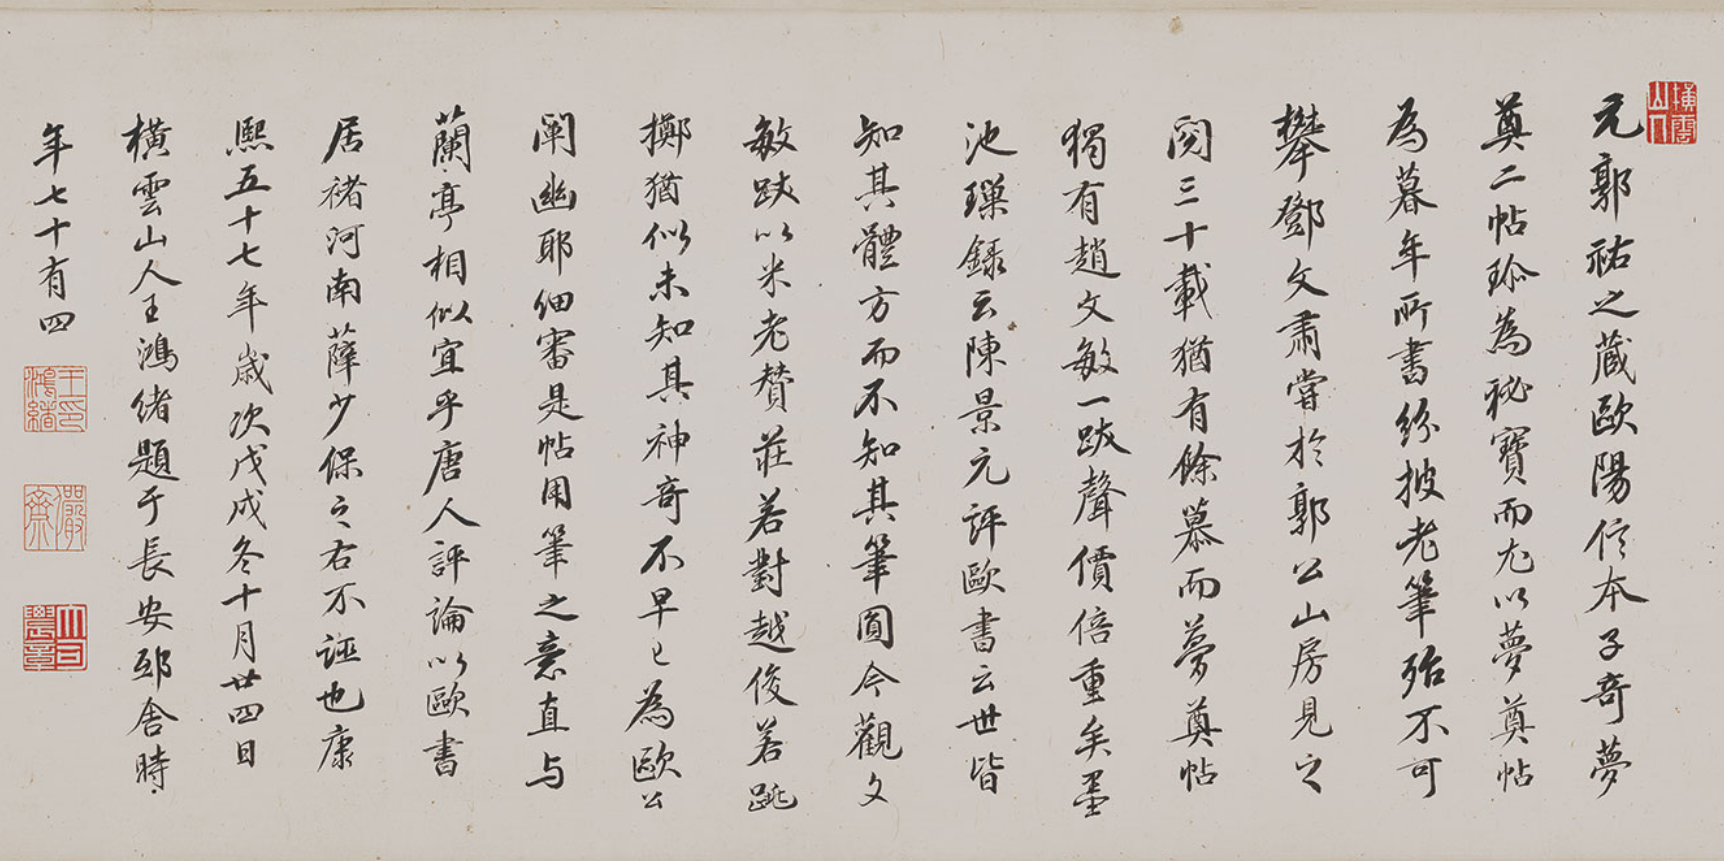 橫雲山人
元郭祐之藏歐陽信本子奇夢
奠二帖珍為祕寶而尤以夢奠帖
為暮年所書紛披老筆殆不可
攀鄧文肅嘗於郭公山房見之
閱三十載猶有餘慕而夢奠帖
獨有趙文敏一跋聲價倍重矣墨
池璅錄云陳景元評歐書云世皆
知其體方而不知其筆圓今觀文
敏跋以米老贊莊若對越俊若跳
擲猶似未知其神奇不早已為歐公
闡幽耶細審是帖用筆之意直与
蘭亭相似宜乎唐人評論以歐書
居褚河南薛少保之右不誣也康
熙五十七年歲次戊戌冬十月廿四日
橫雲山人王鴻緒題于長安邸舍時
年七十有四
王印鴻緒
儼齋